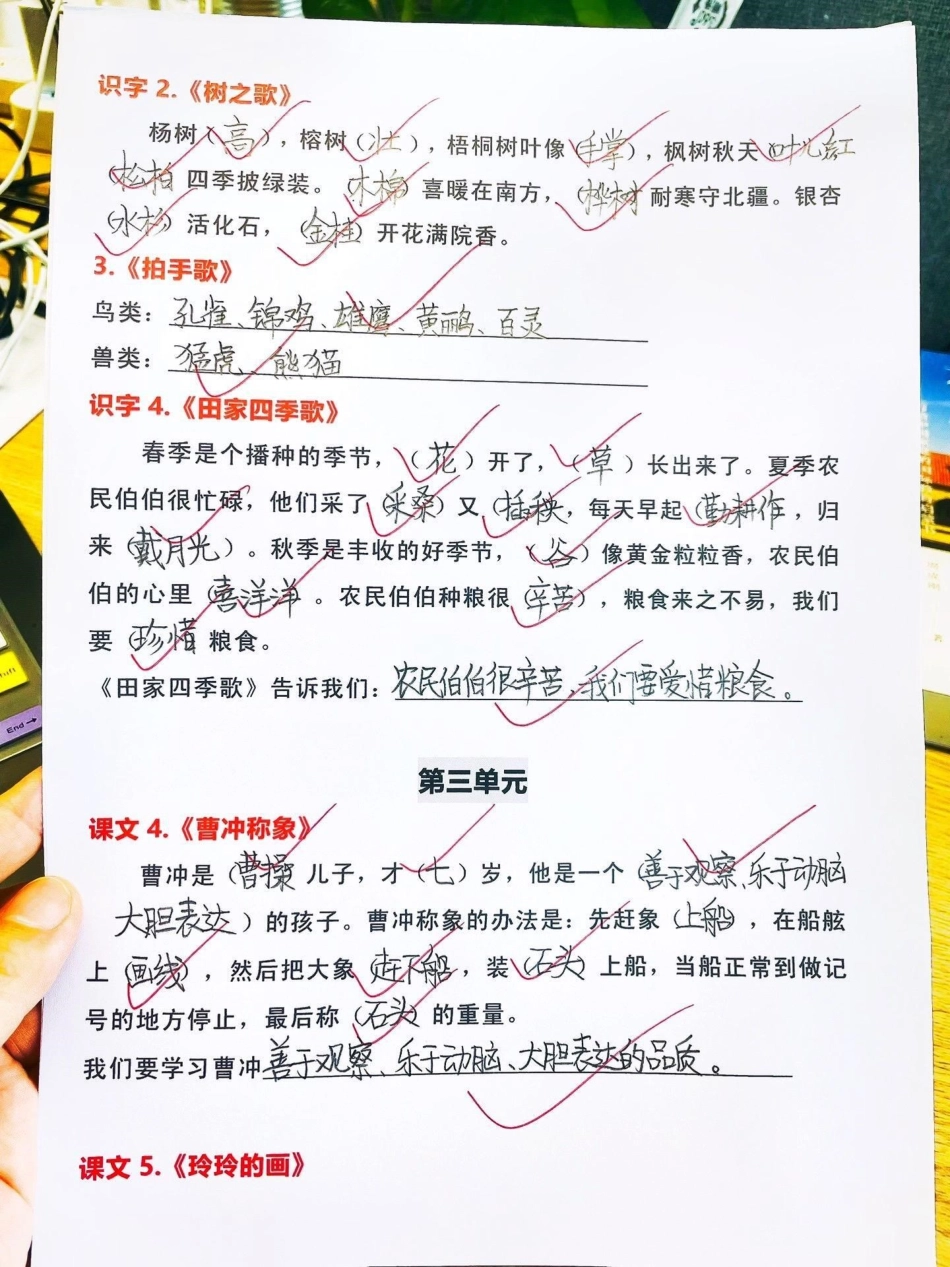 识字 2.《树之歌》
杨树（高），榕树（壮），梧桐树叶像（手掌），枫树秋天（叶儿红
（松柏 四季披绿装。（木棉）喜暖在南方，（桦树 耐寒守北疆。银杏
（水杉）活化石，（金桂）开花满院香。
3.《拍手歌》
鸟类：孔雀、锦鸡、雄鹰、黄鹂、百灵
兽类：猛虎、熊猫
识字 4.《田家四季歌》
春季是个播种的季节，（花）开了，（草）长出来了。夏季农
民伯伯很忙碌，他们采了（采桑）又（插秧，每天早起（勤耕作，归
来（戴月光）。秋季是丰收的好季节，（谷）像黄金粒粒香，农民伯
伯的心里（喜洋洋。农民伯伯种粮很（辛苦），粮食来之不易，我们
要（珍惜 粮食。
《田家四季歌》告诉我们：农民伯伯很辛苦，我们要爱惜粮食。
第三单元
课文 4.《曹冲称象》
曹冲是（曹操 儿子，才（七）岁，他是一个（善于观察、乐于动脑
大胆表达）的孩子。曹冲称象的办法是：先赶象（上船），在船舷
上（画线），然后把大象（赶下船，装（石头）上船，当船正常到做记
号的地方停止，最后称（石头）的重量。
我们要学习曹冲善于观察、乐于动脑、大胆表达的品质。
课文 5.《玲玲的画》
End→